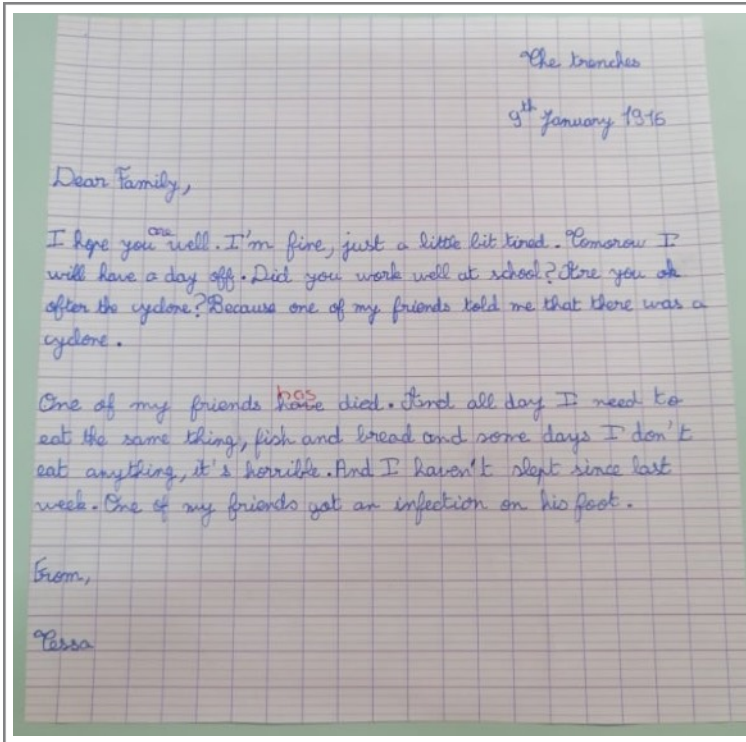 The trenches
9th January 1916
Dear Family,
I hope you are well. I'm fine, just a little bit tired. Tomorow I
will have a day off. Did you work well at school? Are you ok
after the cyclone? Because one of my friends told me that there was a
cyclone.
One of my friends has died. And all day I need to
eat the same thing, fish and bread and some days I don't
eat anything, it's horrible. And I haven't slept since last
week. One of my friends got an infection on his foot.
From,
Tessa